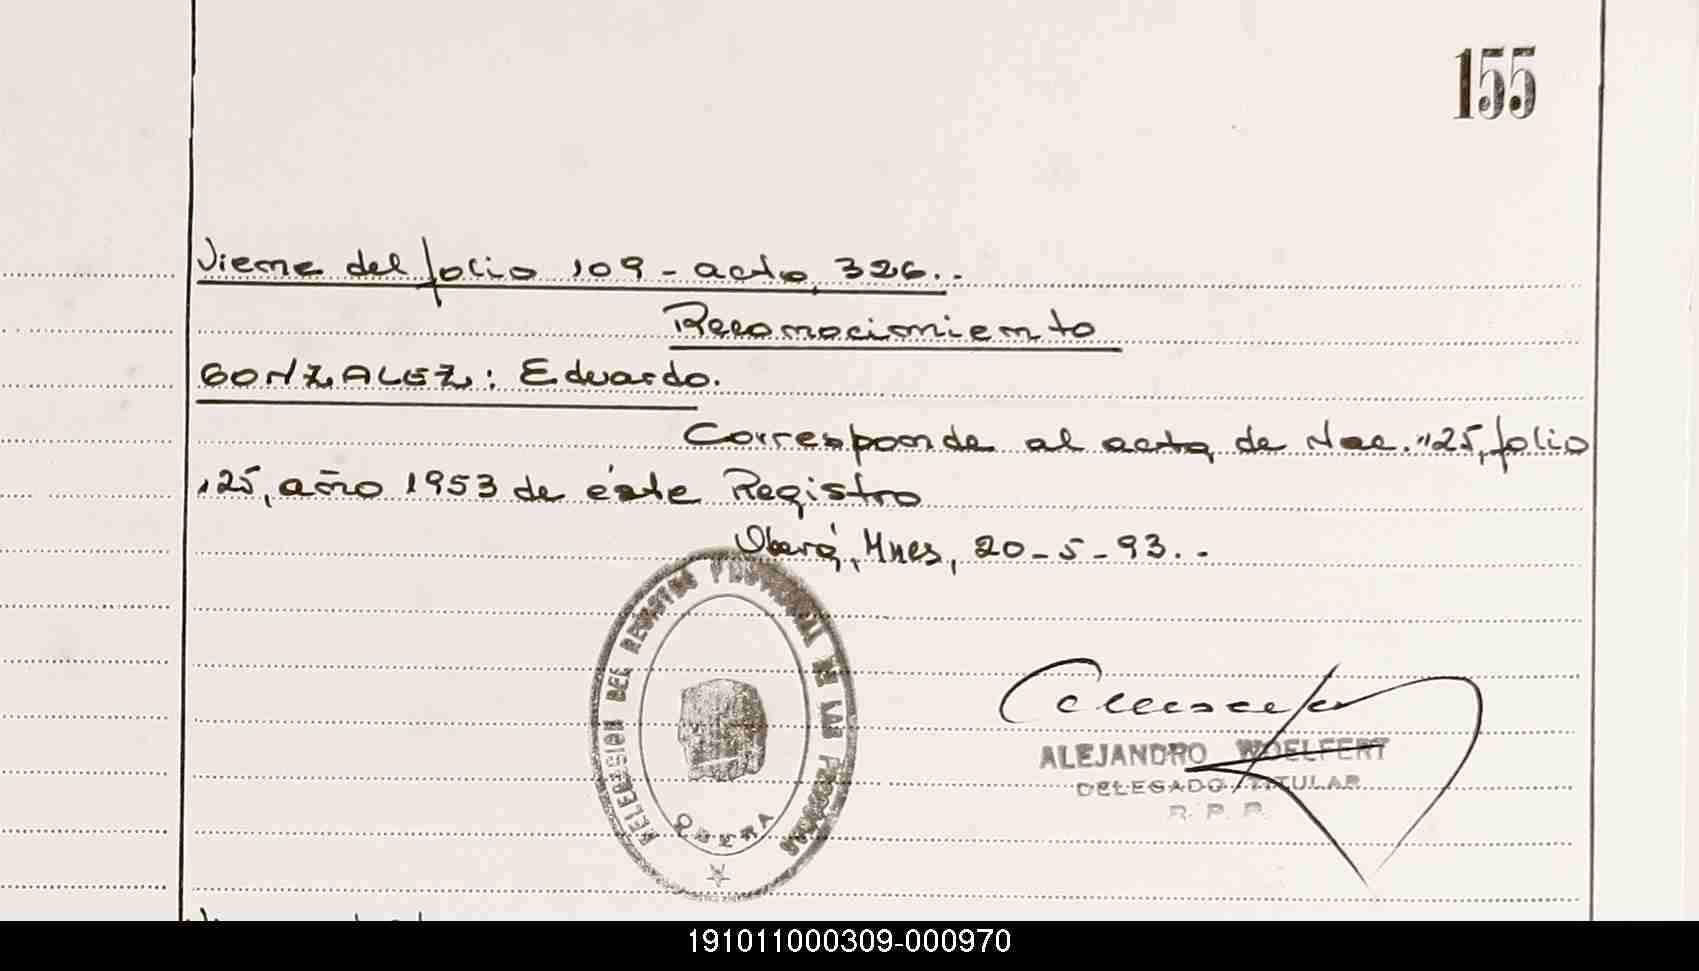 155
Viene del folio 109 - acta 326..
Reconocimiento
GONZALEZ: Eduardo.
Corresponde al acta de Nac. 125, folio
125, año 1953 de éste Registro
Oberá, Mnes, 20-5-93..
DELEGACION DEL REGISTRO PROVINCIAL DE LAS PERSONAS
OBERA
ALEJANDRO WOELFERT
DELEGADO TITULAR
R. P. P.
191011000309-000970